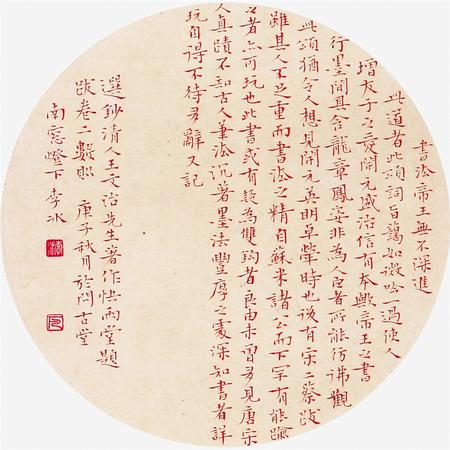 書法帝王無不深進
此道者此頌詞旨藹如微吟一過使人
增友于之愛開元盛治信有本歟帝王之書
行墨間具含龍章鳳姿非為人臣者所能仿彿觀
此頌猶令人想見開元英明卓犖時也後有宋二蔡跋
雖其人不足重而書法之精自蘇米諸公而下罕有能踰
之者亦可玩也此書或有疑為雙鉤者良由未曾多見唐宋
人真蹟不知古人筆法沉著墨法豐厚之處深知書者詳
玩自得不待多辭又記
選鈔清人王文治先生著作快雨堂題
跋卷二數則 庚子秋月於問古堂
南窓燈下李冰